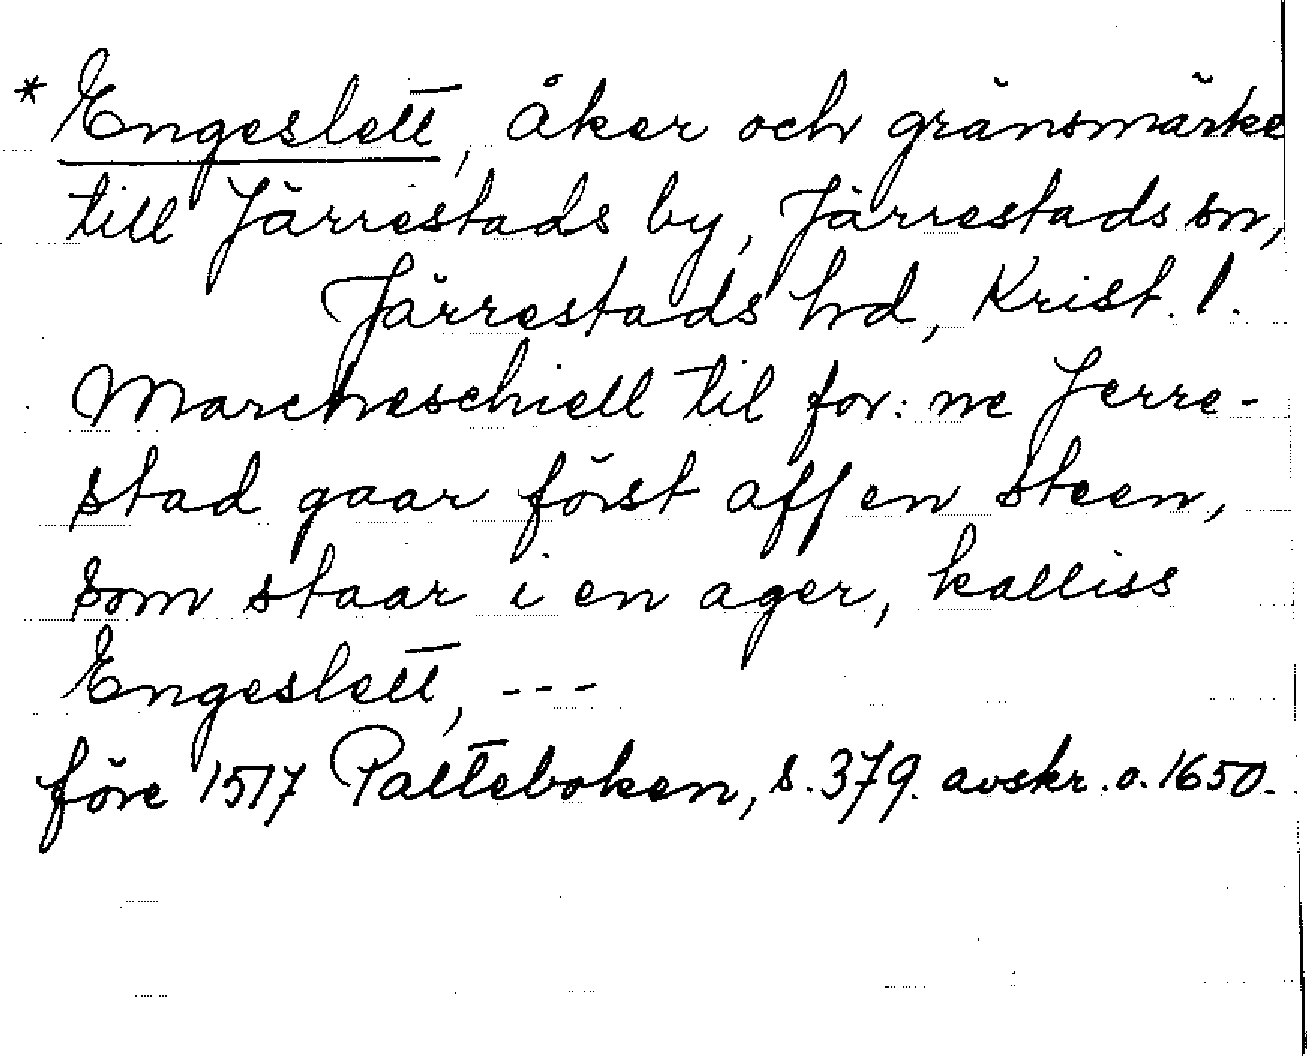 * Engeslett, åker och gränsmärke
till Järrestads by, Järrestads sn,
Järrestads hd, Krist. l.
Marcheschiell til for: ne Jerre-
stad gaar först aff en steen,
som staar i en ager, kalliss
Engeslett, ---
före 1517 Palteboken, s. 379. avskr. o. 1650.